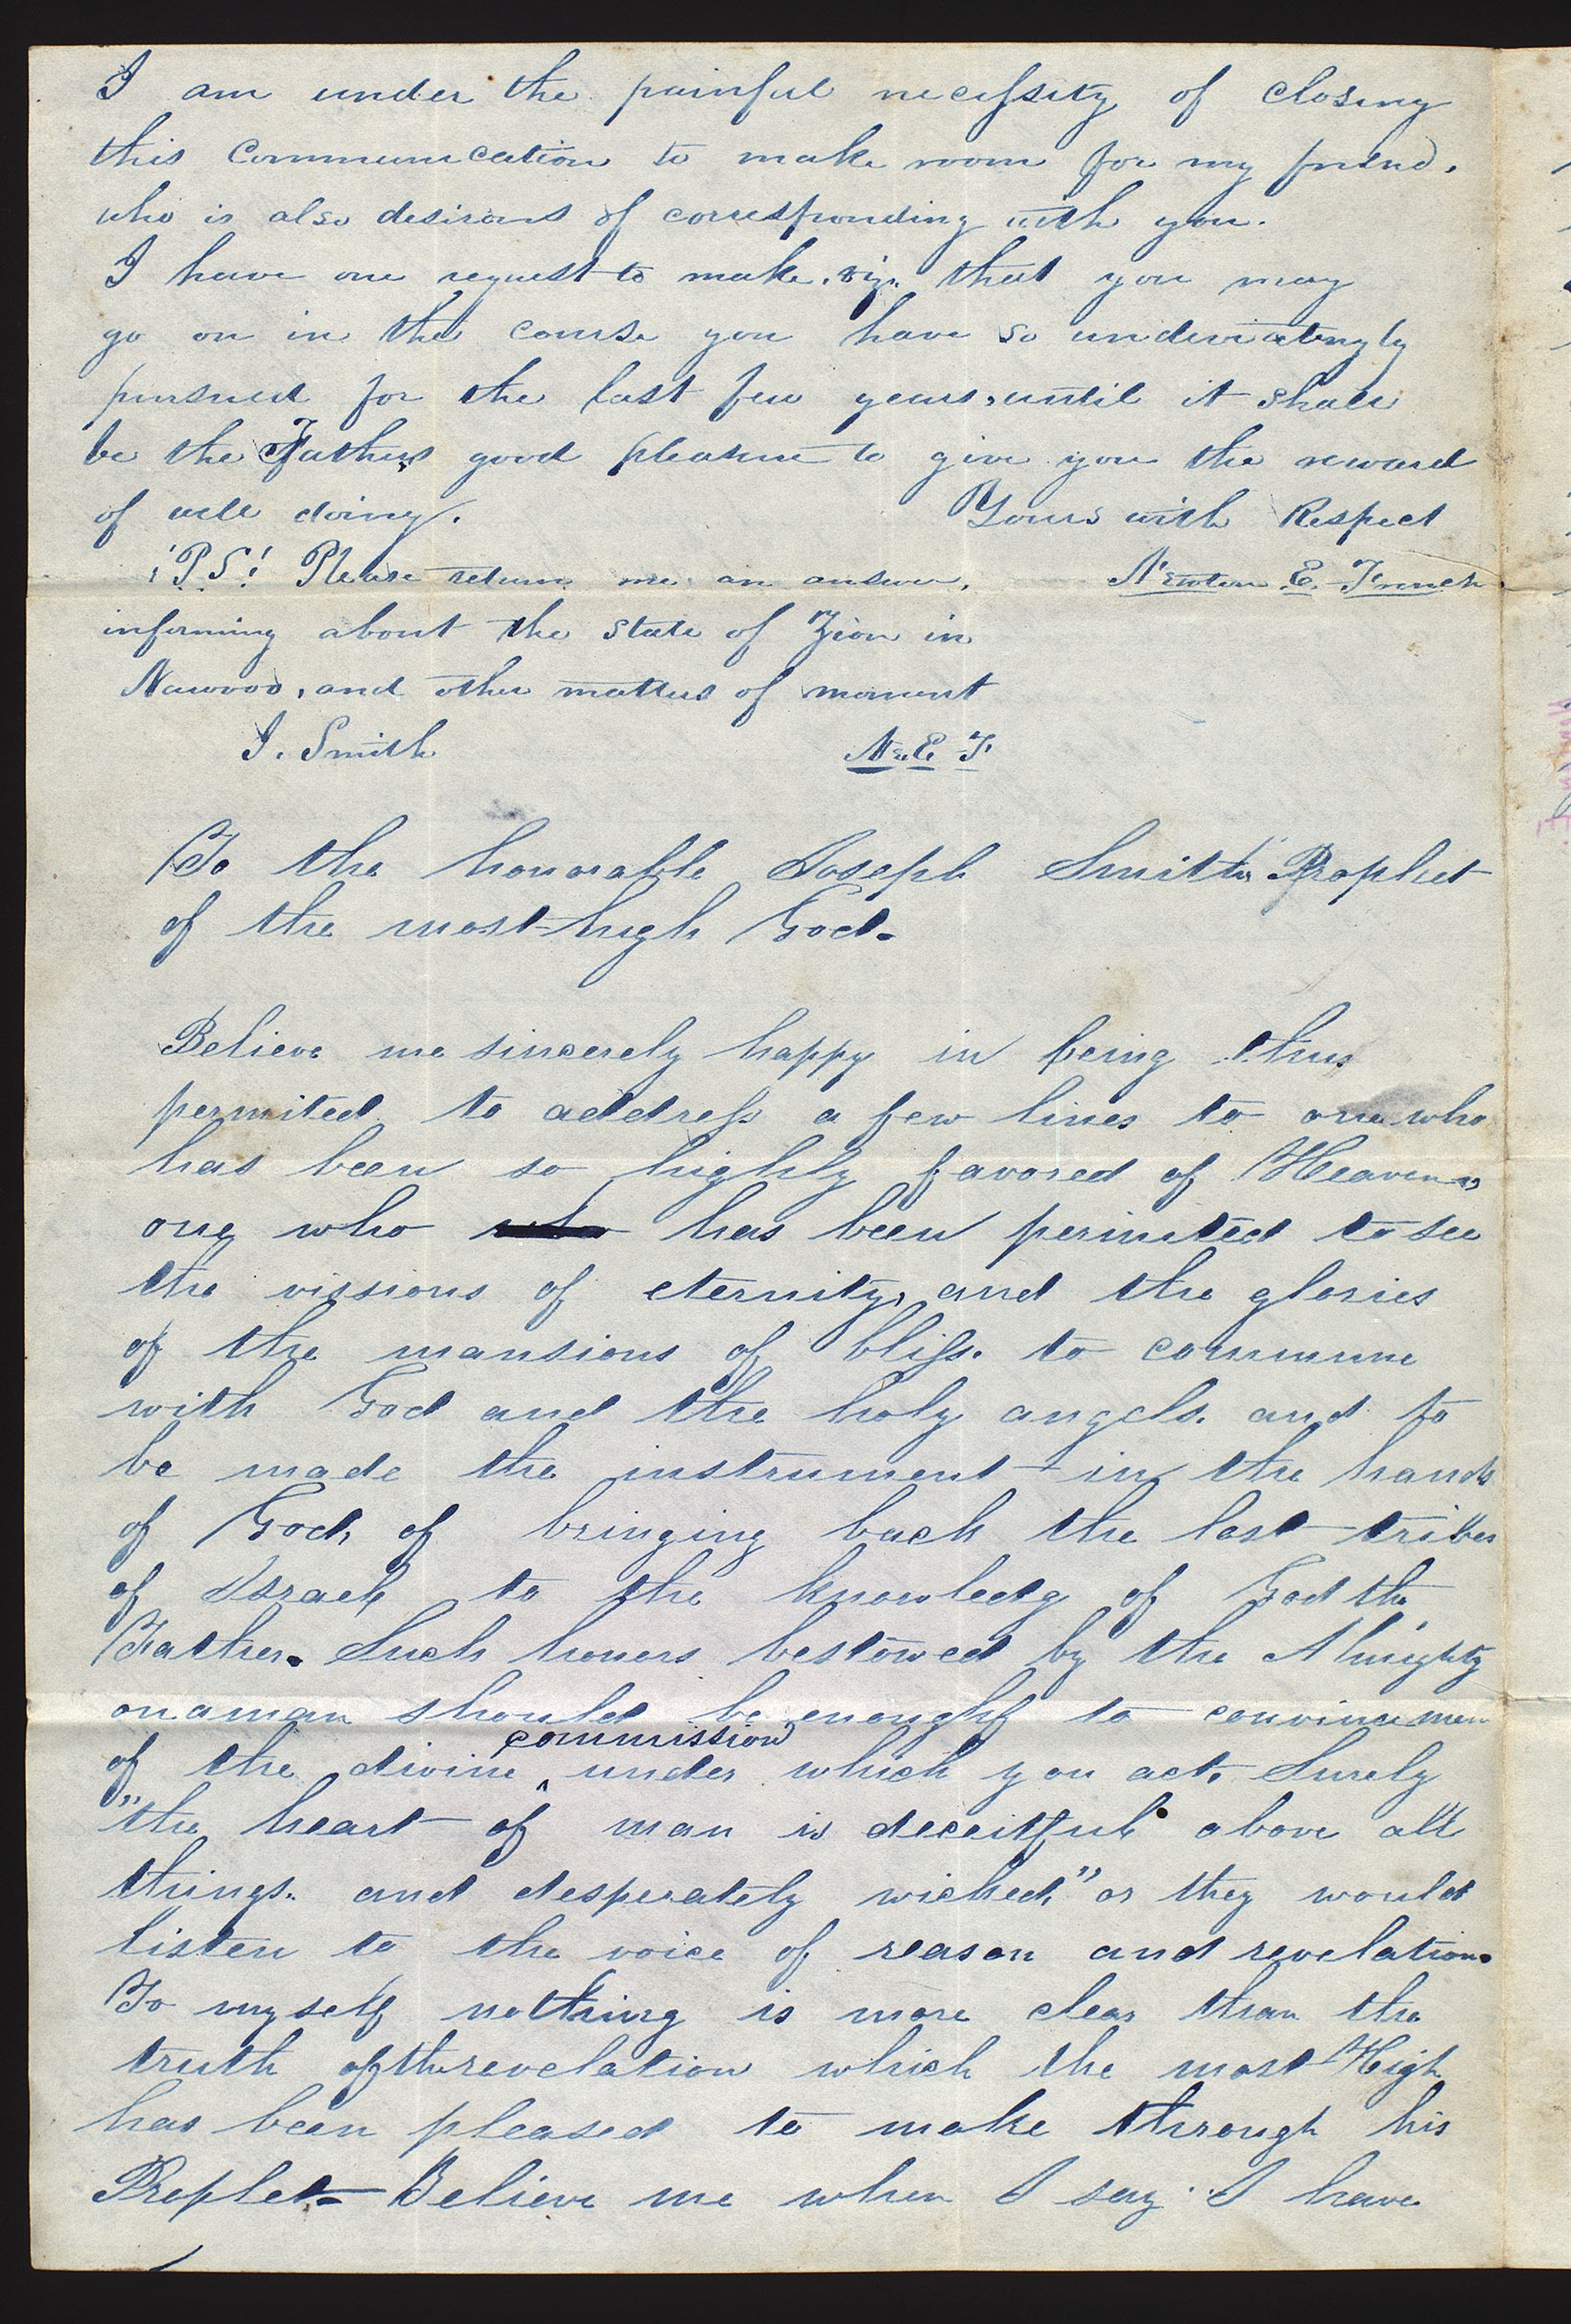 I am under the painful necessity of closing
this communication to make room for my friend.
who is also desirous of corresponding with you.
I have one request to make. viz. that you may
go on in the course you have so undeviatingly
pursued for the last few years, until it shall
be the Fathers good pleasure to give you the reward
of well doing. Yours with Respect
"P.S." Please return me an answer, Newton E. French
informing about the state of Zion in
Nauvoo, and other matters of moment
J. Smith N. E. F
To the honorable Joseph Smith, Prophet
of the most high God.
Believe me sincerely happy in being thus
permited to address a few lines to one who
has been so highly favored of Heaven,
one who has been permited to see
the vissions of eternity, and the glories
of the mansions of bliss. to commune
with God and the holy angels. and to
be made the instrument in the hands
of God, of bringing back the lost tribes
of Israel to the knowledg of God the
Father. Such honers bestowed by the Almighty
on a man should be enough to convince men
of the divine commission under which you act. Surely
"the heart of man is deceitful above all
things. and desperately wicked," or they would
listen to the voice of reason and revelation.
To myself nothing is more clear than the
truth of the revelation which the most High
has been pleased to make through his
Prophet- Believe me when I say I have